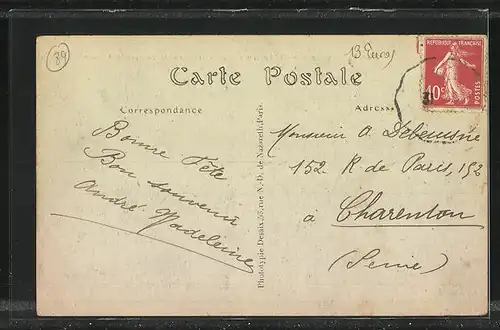 89
13 Euros
RÉPUBLIQUE FRANÇAISE
10c
POSTES
Carte Postale
Correspondance
Adresse
Bonne Fête
Bon souvenir
André Madeleine
Phototypie Desaix, 56, rue N.-D. de Nazareth, Paris.
Monsieur A. Debeusne
152 R de Paris, 152
à Charenton
(Seine)